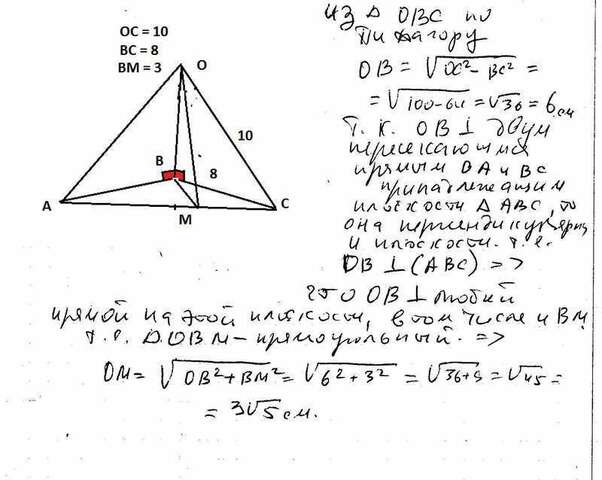 OC = 10
BC = 8
BM = 3
O
10
B
8
A
M
C
Из Δ OBC по
Пифагору
OB = √OC² - BC² =
= √100-64 = √36 = 6 см
Т. к. OB ⊥ двум
пересекающимся
прямым BA и BC
принадлежащим
плоскости Δ ABC, то
она перпендикулярна
и плоскости. т.е.
OB ⊥ (ABC) =>
что OB ⊥ любой
прямой на этой плоскости, в том числе и BM.
т. е. Δ OBM - прямоугольный. =>
OM = √OB² + BM² = √6² + 3² = √36+9 = √45 =
= 3√5 см.